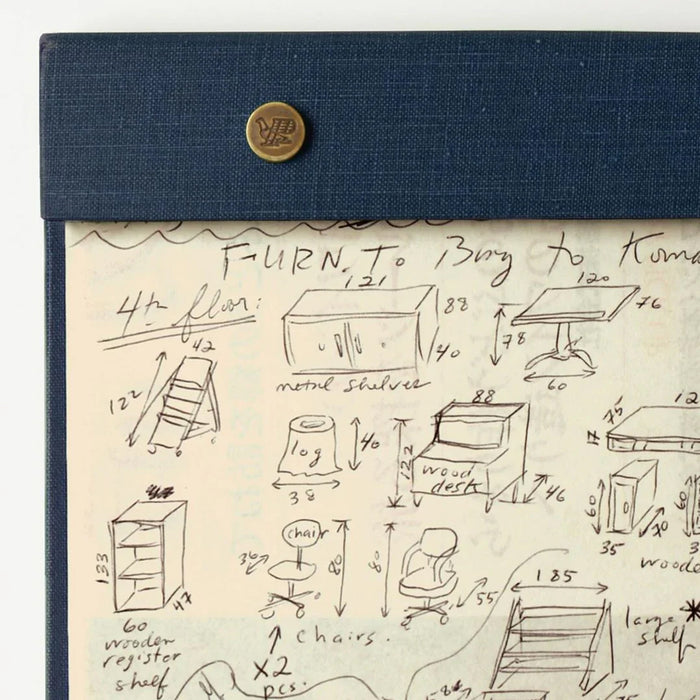 FURN. To Buy to Koma
4th floor:
121
88
40
metal shelves
120
76
78
60
42
122
log
40
38
88
122
wood
desk
46
12
17
60
35
30
wood
133
47
60
wooden
register
shelf
chair
36
80
80
55
↑ chairs.
X2
pcs.
185
large *
shelf